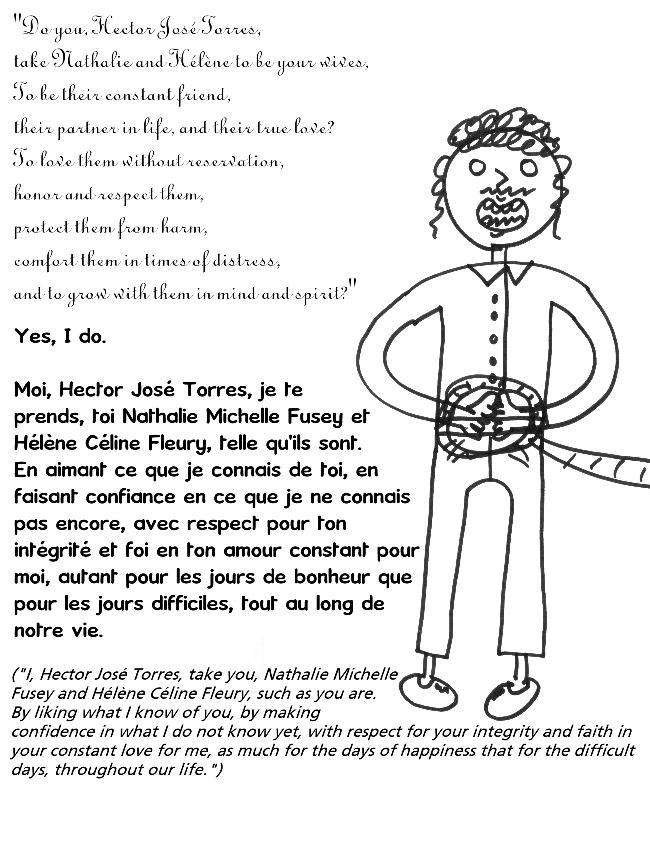 "Do you, Hector José Torres,
take Nathalie and Hélène to be your wives,
To be their constant friend,
their partner in life, and their true love?
To love them without reservation,
honor and respect them,
protect them from harm,
comfort them in times of distress,
and to grow with them in mind and spirit?"
Yes, I do.
Moi, Hector José Torres, je te
prends, toi Nathalie Michelle Fusey et
Hélène Céline Fleury, telle qu'ils sont.
En aimant ce que je connais de toi, en
faisant confiance en ce que je ne connais
pas encore, avec respect pour ton
intégrité et foi en ton amour constant pour
moi, autant pour les jours de bonheur que
pour les jours difficiles, tout au long de
notre vie.
("I, Hector José Torres, take you, Nathalie Michelle
Fusey and Hélène Céline Fleury, such as you are.
By liking what I know of you, by making
confidence in what I do not know yet, with respect for your integrity and faith in
your constant love for me, as much for the days of happiness that for the difficult
days, throughout our life.")